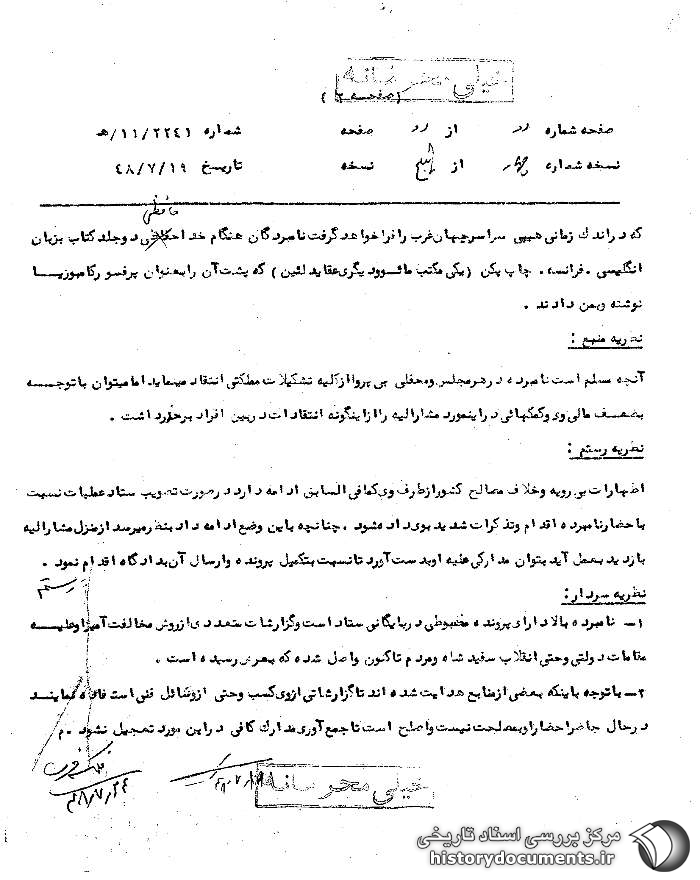 خیلی محرمانه
(صفحه ۲)
صفحه شماره دو از دو صفحه شماره ۱۱/۲۲۴۱/هـ
نسخه شماره چهار از پنج نسخه تاریخ ۴۸/۷/۱۹
حافظی
که در اندک زمانی هیپی سراسر جهان غرب را فرا خواهد گرفت نامبردگان هنگام خداحافظی دو جلد کتاب بزبان
انگلیسی - فرانسه - چاپ پکن (یکی مکتب مائو و دیگری عقاید لنین) که پشت آن را بعنوان پرفسور کامبوزیا
نوشته و بمن دادند .
نظریه منبع :
آنچه مسلم است نامبرده در هر مجلس و محفلی بی پروا از کلیه تشکیلات مملکتی انتقاد مینماید اما میتوان با توجه
بضعف مالی وی و کمکهائی در اینمورد مشارالیه را از اینگونه انتقادات در بین افراد برحذر داشت .
نظریه رستم :
اظهارات بی رویه و خلاف مصالح کشور از طرف وی کمافی السابق ادامه دارد در صورت تصویب ستاد عملیات نسبت
باحضار نامبرده اقدام و تذکرات شدید بوی داده شود ، چنانچه باین وضع ادامه داد بنظر میرسد از منزل مشارالیه
بازدید بعمل آید بتوان مدارکی علیه او بدست آورد تا نسبت بتکمیل پرونده و ارسال آن بدادگاه اقدام نمود .
رستم
نظریه سردار :
۱- نامبرده بالا دارای پرونده مضبوطی در بایگانی ستاد است و گزارشات متعددی از روش مخالفت آمیز او علیه
مقامات دولتی و حتی انقلاب سفید شاه و مردم تاکنون واصل شده که بعرض رسیده است .
۲- با توجه باینکه بعضی از منابع هدایت شده اند تا گزارشاتی از وی کسب و حتی از وسائل فنی استفاده نمایند
در حال حاضر احضار او بمصلحت نیست و اصلح است تا جمع آوری مدارک کافی در این مورد تعجیل نشود . م
۴۸/۷/۲۴
خیلی محرمانه
مرکز بررسی اسناد تاریخی
historydocuments.ir